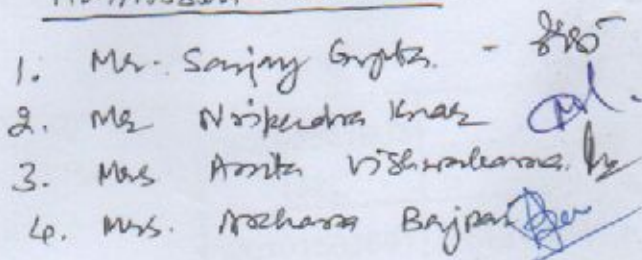 1. Mr. Sanjay Gupta -
2. Mr Nripendra
3. Mrs Amita Vishwakarma
4. Mrs. Archana Bajpai